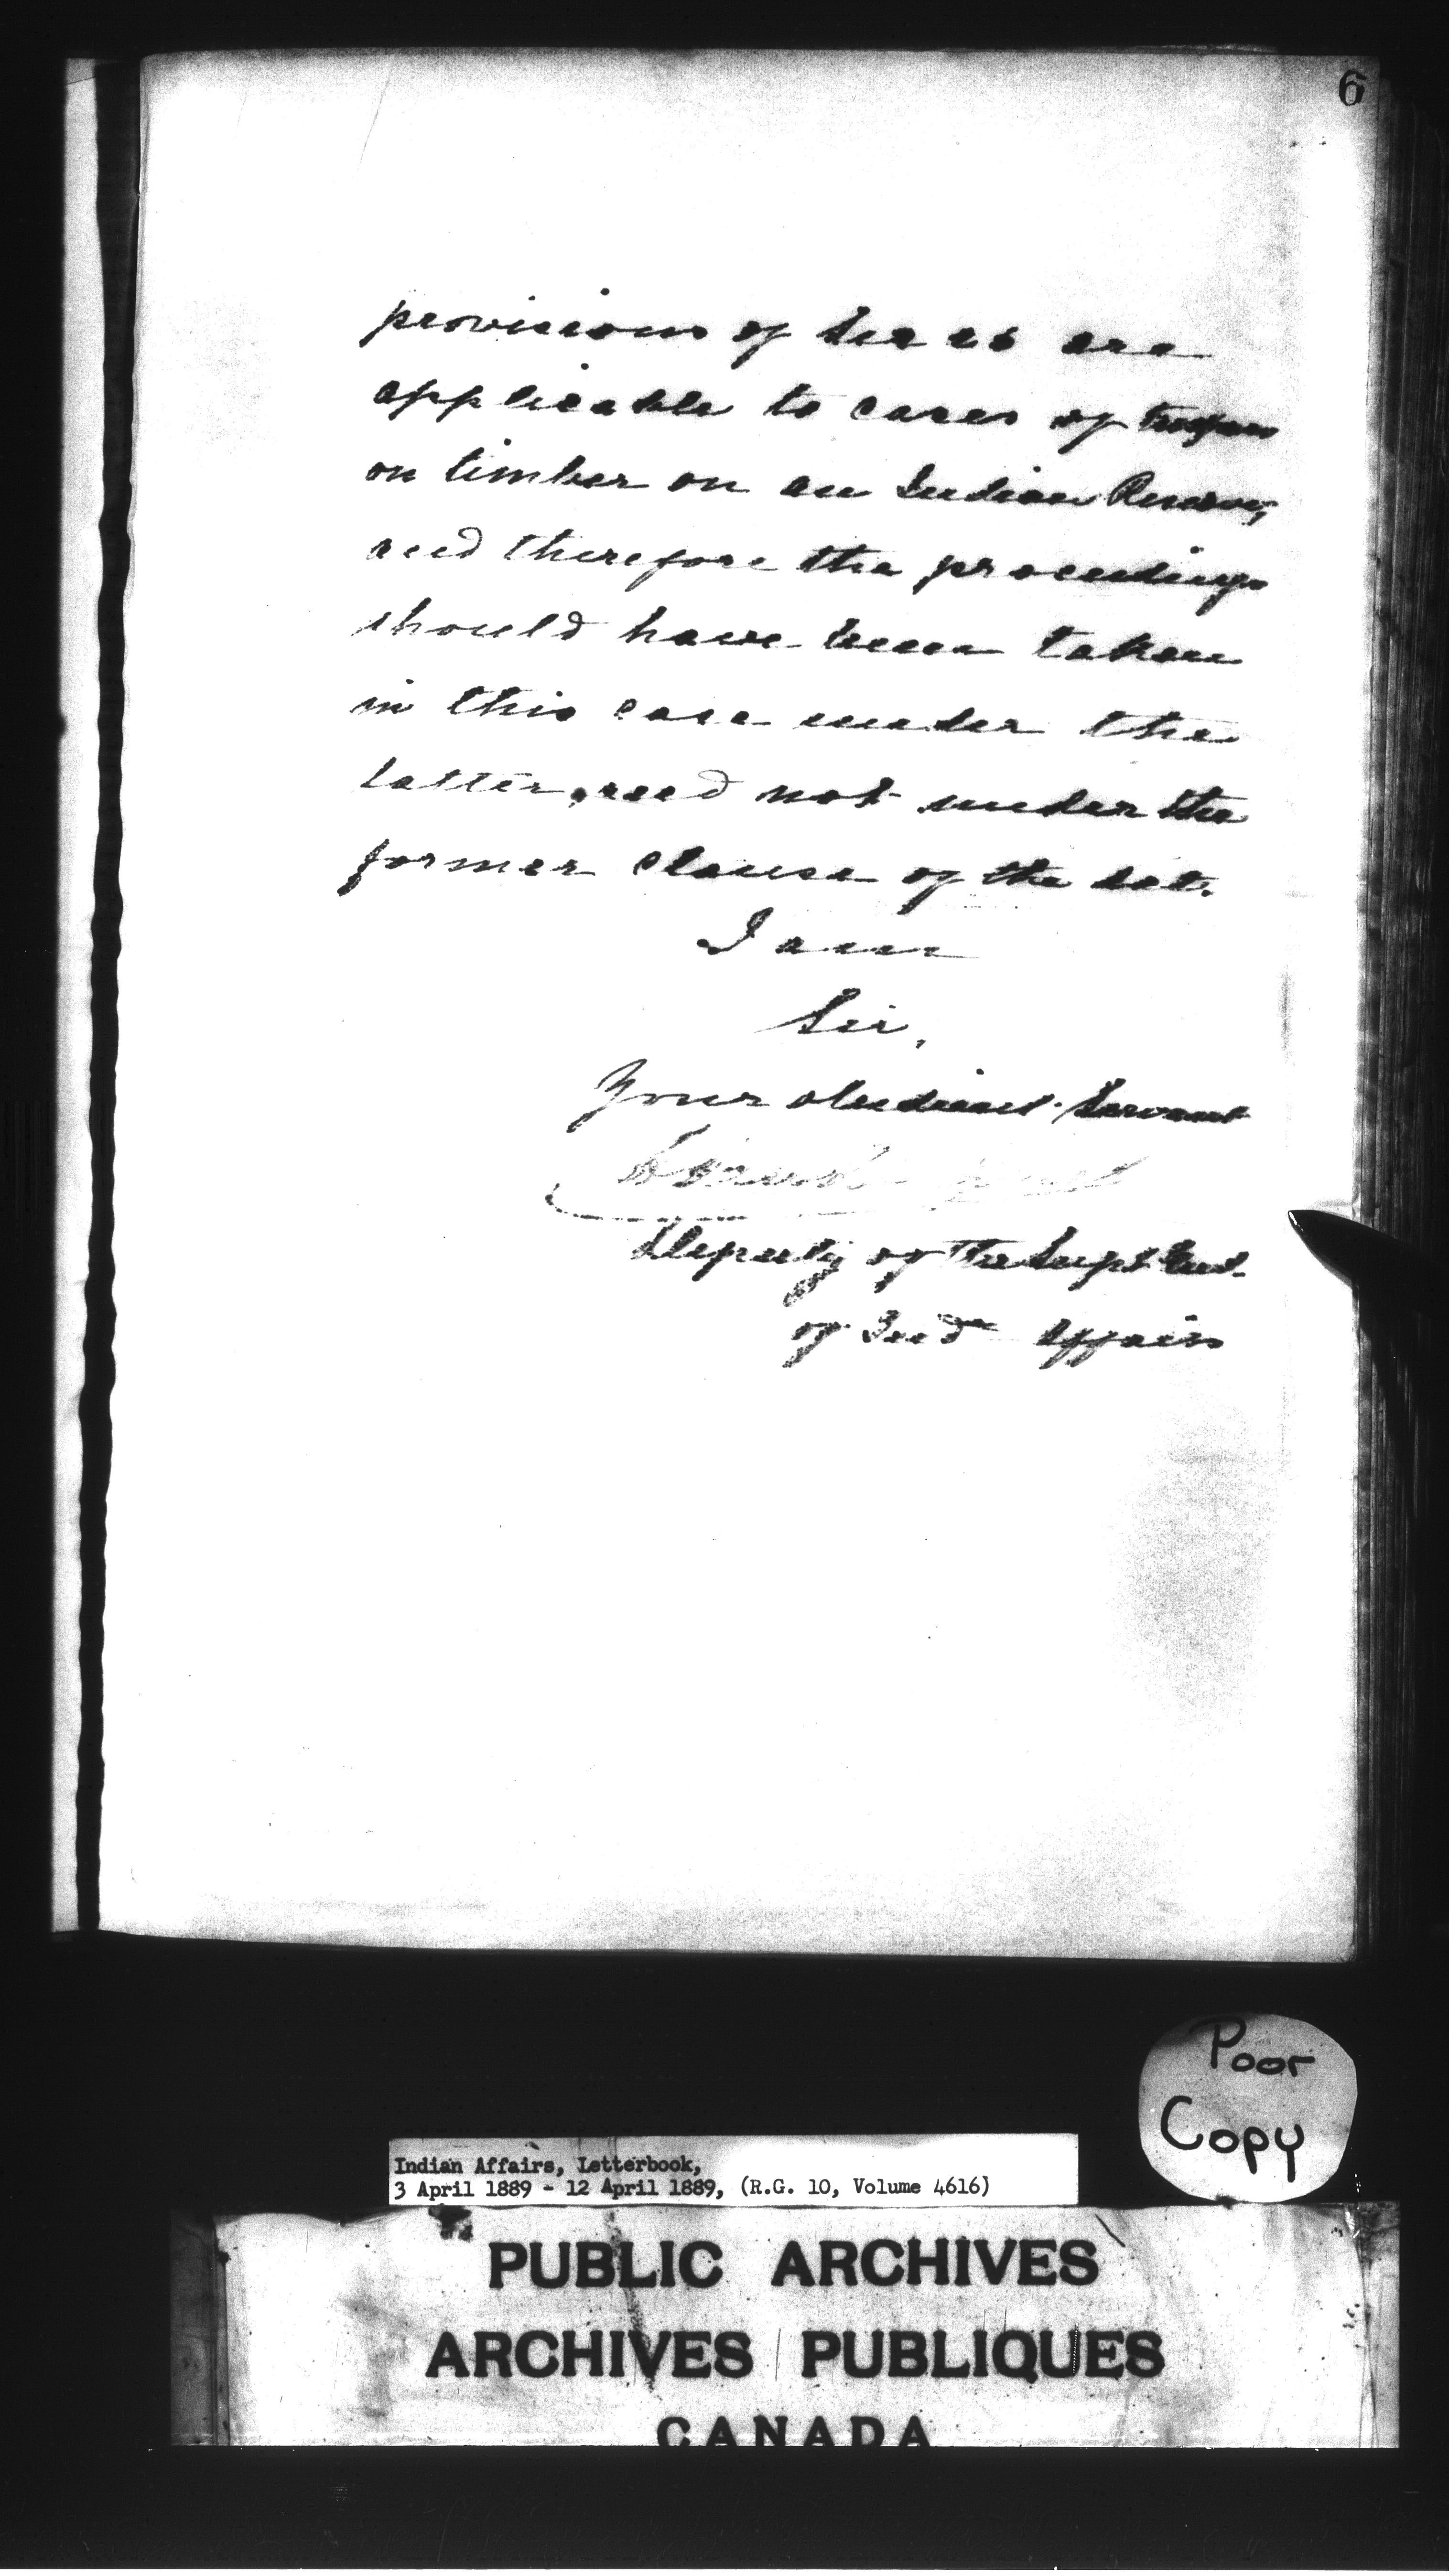 6
provisions of Sec 26 are
applicable to cases of trespass
on timber on an Indian Reserve,
and therefore the proceedings
should have been taken
in this case under the
latter, and not under the
former clause of the Act.
I am
Sir,
Your obedient Servant
Deputy of the Supt Genl.
of Indn Affairs
Poor
Copy
Indian Affairs, Letterbook,
3 April 1889 - 12 April 1889, (R.G. 10, Volume 4616)
PUBLIC ARCHIVES
ARCHIVES PUBLIQUES
CANADA